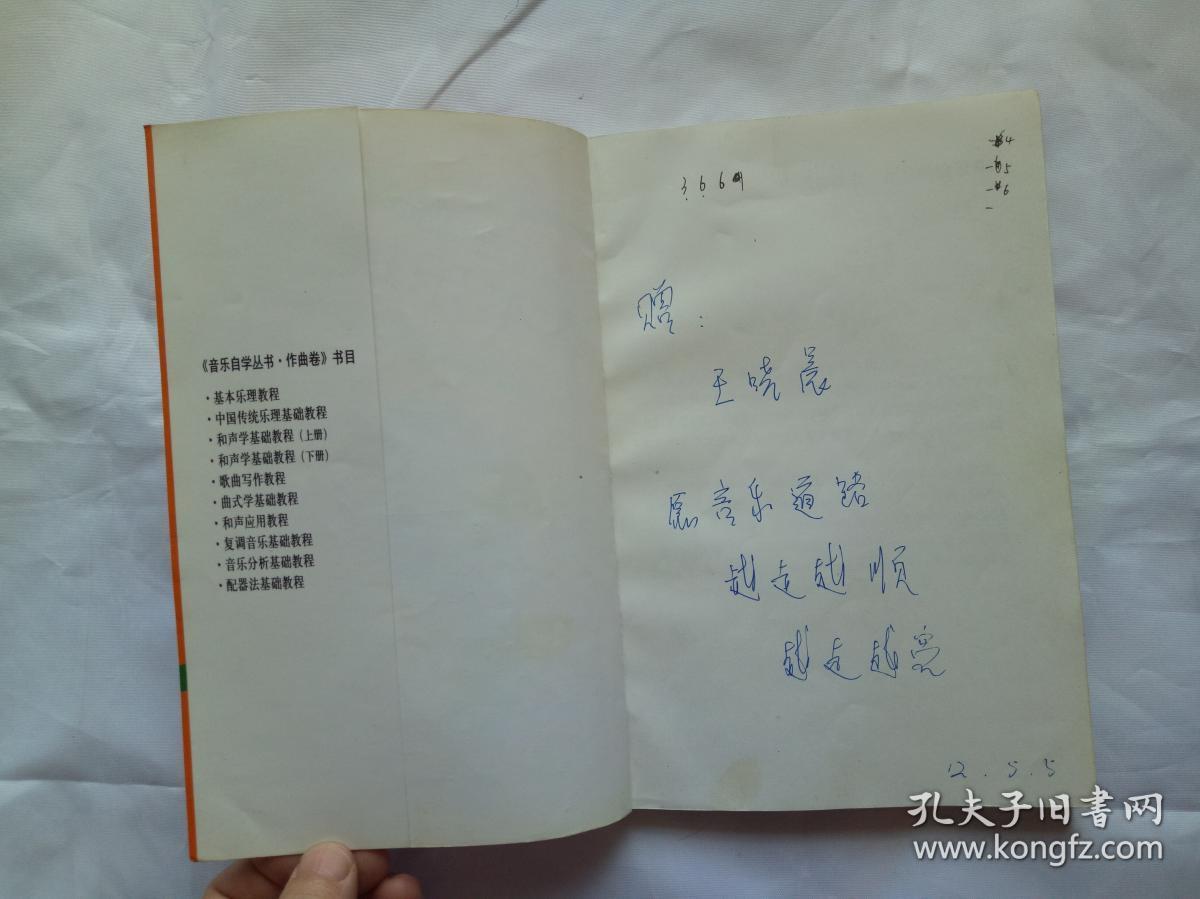 《音乐自学丛书·作曲卷》书目
·基本乐理教程
·中国传统乐理基础教程
·和声学基础教程(上册)
·和声学基础教程(下册)
·歌曲写作教程
·曲式学基础教程
·和声应用教程
·复调音乐基础教程
·音乐分析基础教程
·配器法基础教程
4
5
6
赠:
王晓晨
愿音乐道路
越走越顺
越走越亮
12.5.5
孔夫子旧书网
www.kongfz.com